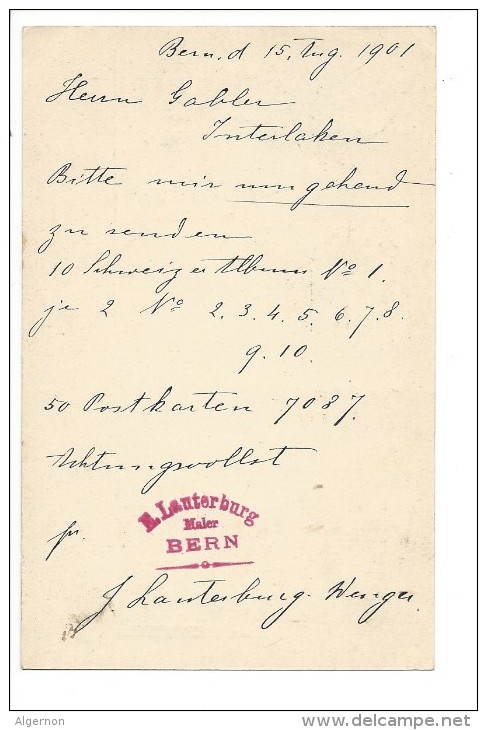 Bern, d 15. Aug. 1901
Herrn Gabler
Interlaken
Bitte mir umgehend
zu senden
10 Schweizer Album No 1.
je 2 No 2. 3. 4. 5. 6. 7. 8.
9. 10.
50 Postkarten 7087.
Achtungsvollst
E. Lauterburg
Maler
BERN
pr.
J Lauterburg-Wenger.
Algernon
www.delcampe.net